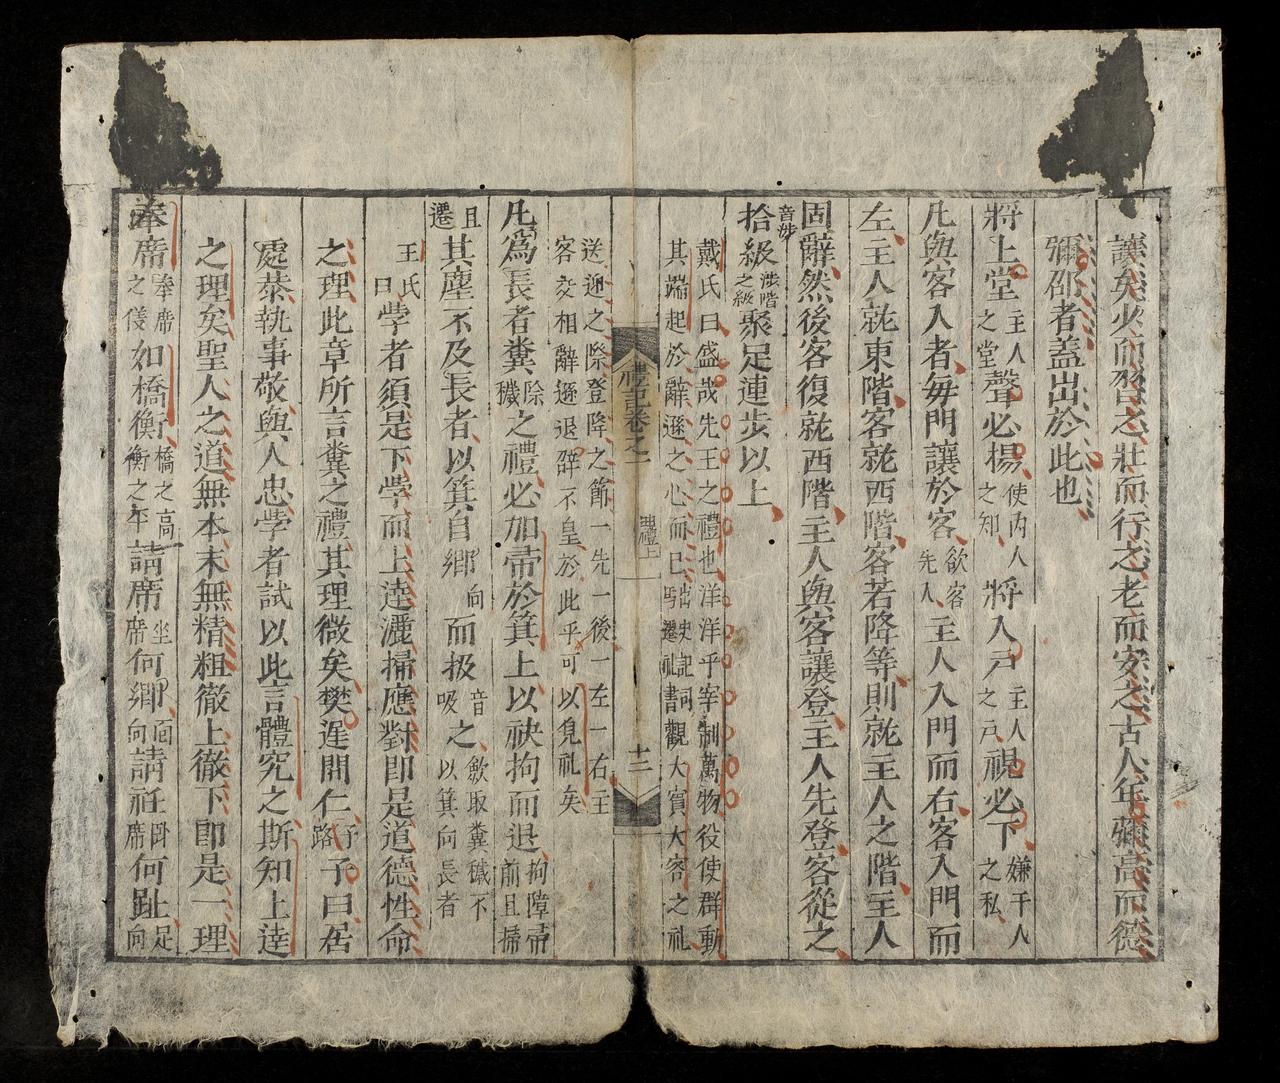 讓矣少而習之壯而行之老而安之古人年彌高而德
彌邵者蓋出於此也
將上堂主人之堂聲必揚使內人之知將入戶主人之戶視必下嫌干人之私
凡與客入者每門讓於客欲客先入主人入門而右客入門而
左主人就東階客就西階客若降等則就主人之階主人
固辭然後客復就西階主人與客讓登主人先登客從之
拾音涉級涉階之級聚足連步以上
戴氏曰盛哉先王之禮也洋洋乎宰制萬物役使群動
其端起於辭遜之心而已出史記遷礼書觀大賓大客之礼
禮記卷之一
曲禮上
十二
送迎之際登降之節一先一後一左一右主
客交相辭遜退辟不皇於此乎可以見礼矣
凡為長者糞除穢之禮必加帚於箕上以袂拘而退拘障帚前且掃
且遷其塵不及長者以箕自鄉向而扱音吸之斂取糞穢不以箕向長者
王氏曰學者須是下學而上達灑掃應對即是道德性命
之理此章所言糞之禮其理微矣樊遲問仁子路子曰居
處恭執事敬與人忠學者試以此言體究之斯知上達
之理矣聖人之道無本末無精粗徹上徹下即是一理
奉席奉席之儀如橋衡橋之高衡之平請席坐席何鄉面向請衽臥席何趾足向